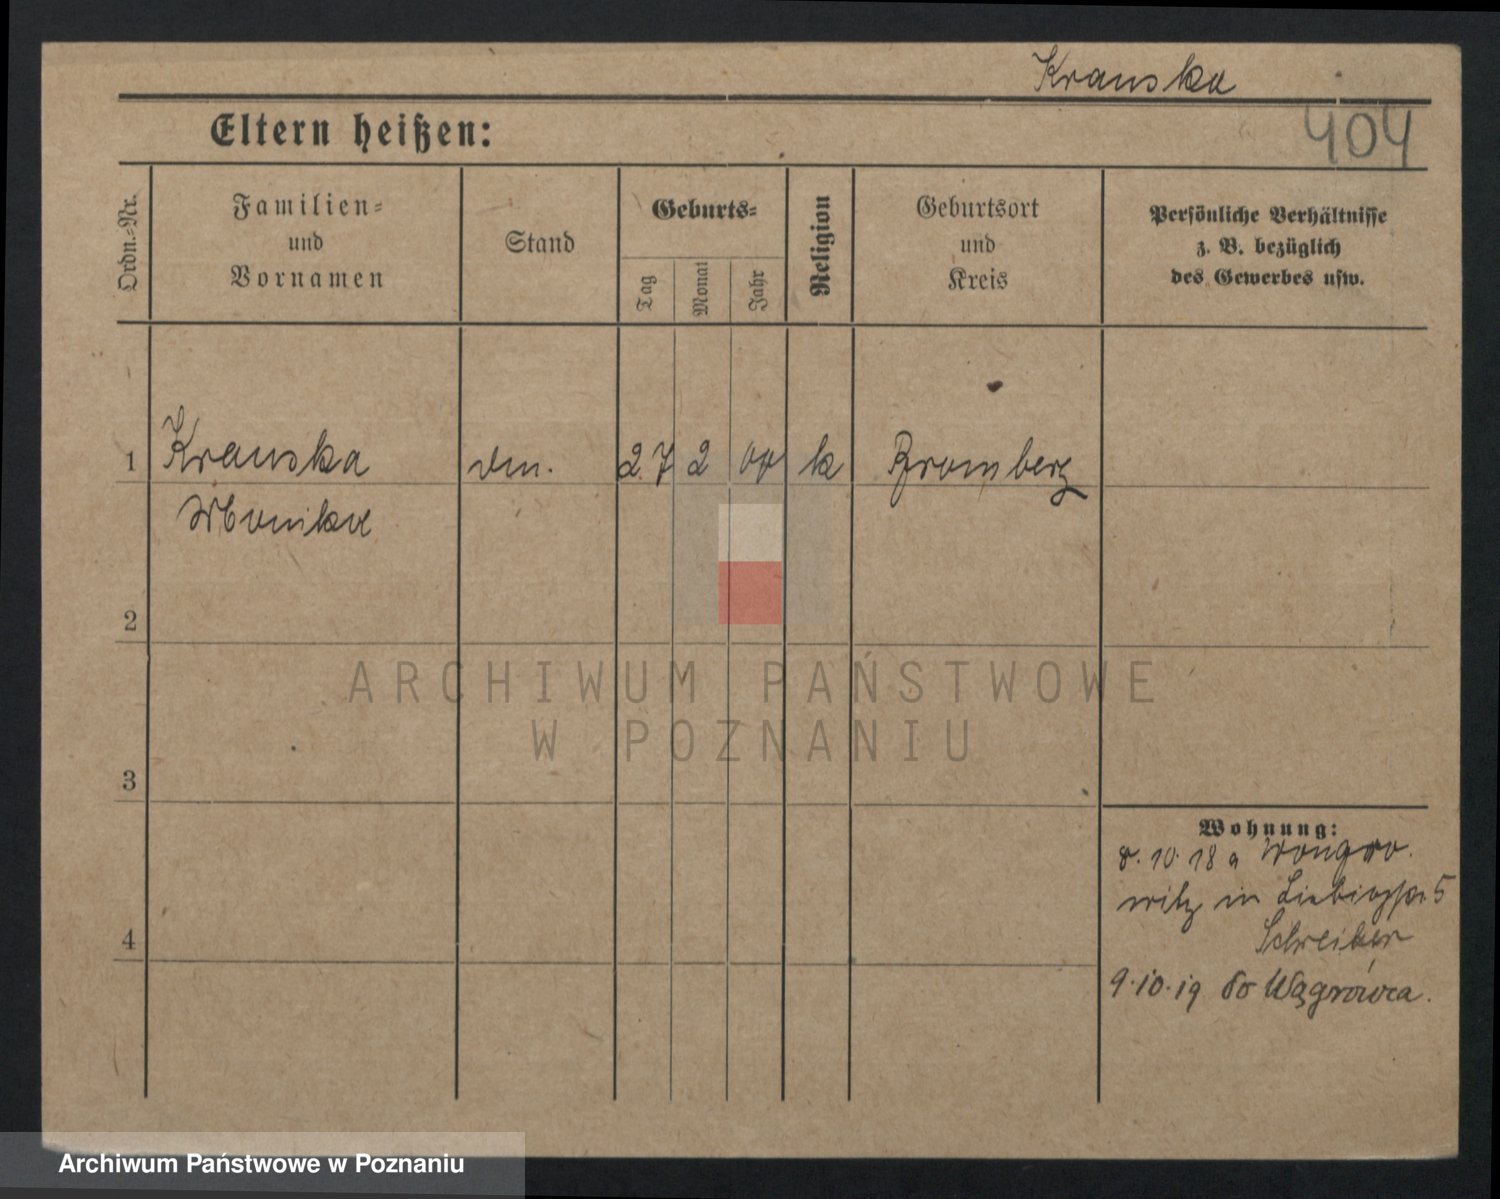 Kranska
Eltern heißen:
404
Ordn.-Nr.
Familien-
und
Vornamen
Stand
Geburts-
Tag
Monat
Jahr
Religion
Geburtsort
und
Kreis
Persönliche Verhältnisse
z. B. bezüglich
des Gewerbes usw.
1 Kranska 27 2 00 k Bromberg
Monika
2
3
4
Wohnung:
8.10.18 a Wongro-
witz in 5
Schreiber
9.10.19 do Wągrówca.
ARCHIWUM PAŃSTWOWE
W POZNANIU
Archiwum Państwowe w Poznaniu